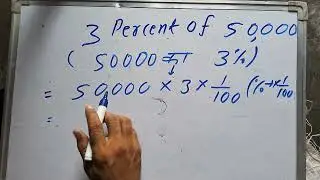 3 Percent of 50,000
( 50000 का 3%)
= 50,000 × 3 × 1/100 (%→×1/100
=